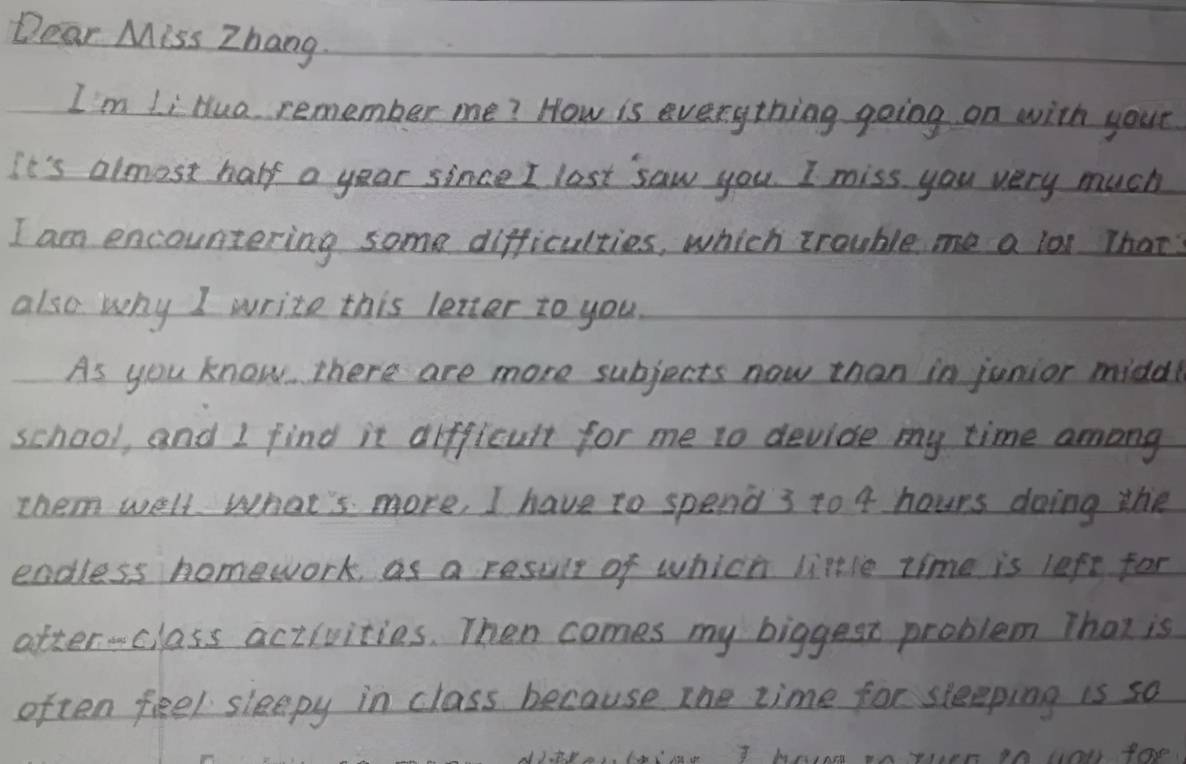 Dear Miss Zhang.
I'm Li Hua. remember me? How is everything going on with your
It's almost half a year since I last saw you. I miss you very much
I am encountering some difficulties, which trouble me a lot That's
also why I write this letter to you.
As you know, there are more subjects now than in junior middl
school, and I find it difficult for me to devide my time among
them well. What's more, I have to spend 3 to 4 hours doing the
endless homework, as a result of which little time is left for
after-class activities. Then comes my biggest problem That is
often feel sleepy in class because the time for sleeping is so
difficulties, I have to turn to you for